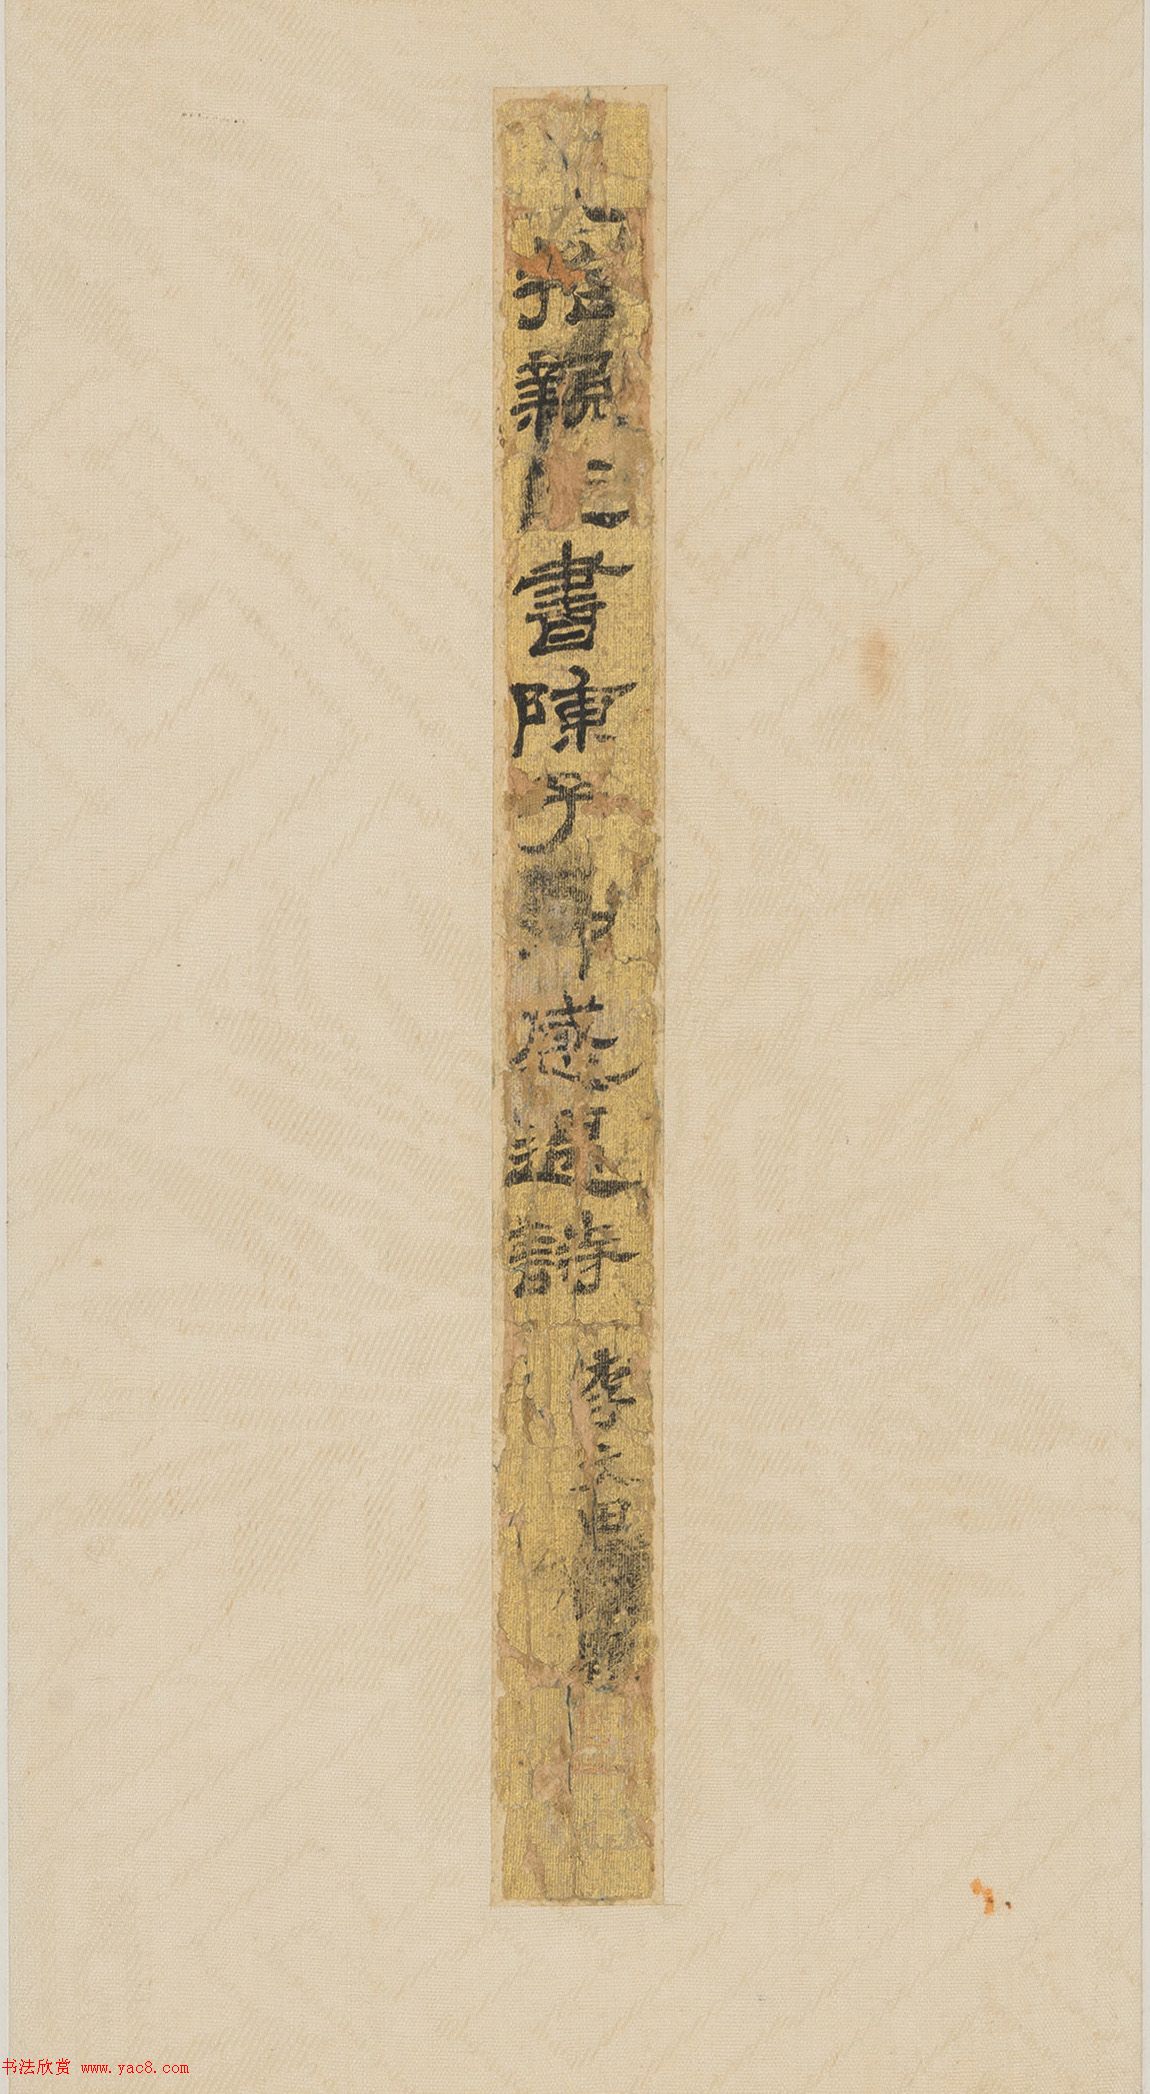 親仁書陳子昂感遇詩
李文田題
书法欣赏 www.yac8.com